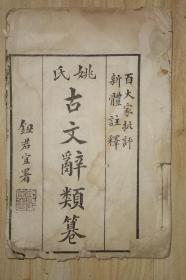 百大家批評
新體註釋
姚氏
古文辭類纂
鈕君宜署